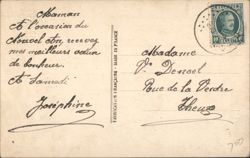 Maman
A l'occasion du
Nouvel An, recevez
mes meilleurs vœux
de bonheur.
A Samedi
Joséphine
FABRICATION FRANÇAISE - MADE IN FRANCE
Madame
Vve Denoel
Rue de la
Theux